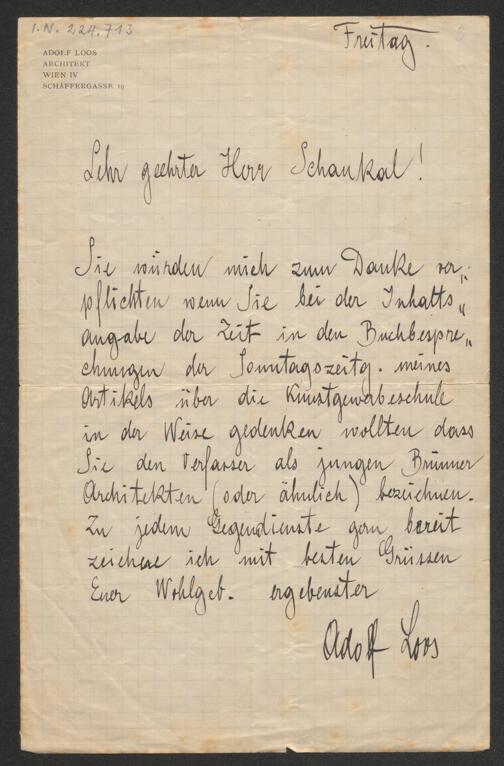 I.N. 224.713
Freitag.
ADOLF LOOS
ARCHITEKT
WIEN IV
SCHÄFFERGASSE 19
Sehr geehrter Herr Schaukal!
Sie würden mich zum Danke ver„
pflichten wenn Sie bei der Inhalts„
angabe der Zeit in den Buchbespre„
chungen der Sonntagszeitg. meines
Artikels über die Kunstgewerbeschule
in der Weise gedenken wollten dass
Sie den Verfasser als jungen Brünner
Architekten (oder ähnlich) bezeichnen.
Zu jedem Gegendienste gern bereit
zeichene ich mit besten Grüssen
Euer Wohlgeb. ergebenster
Adolf Loos